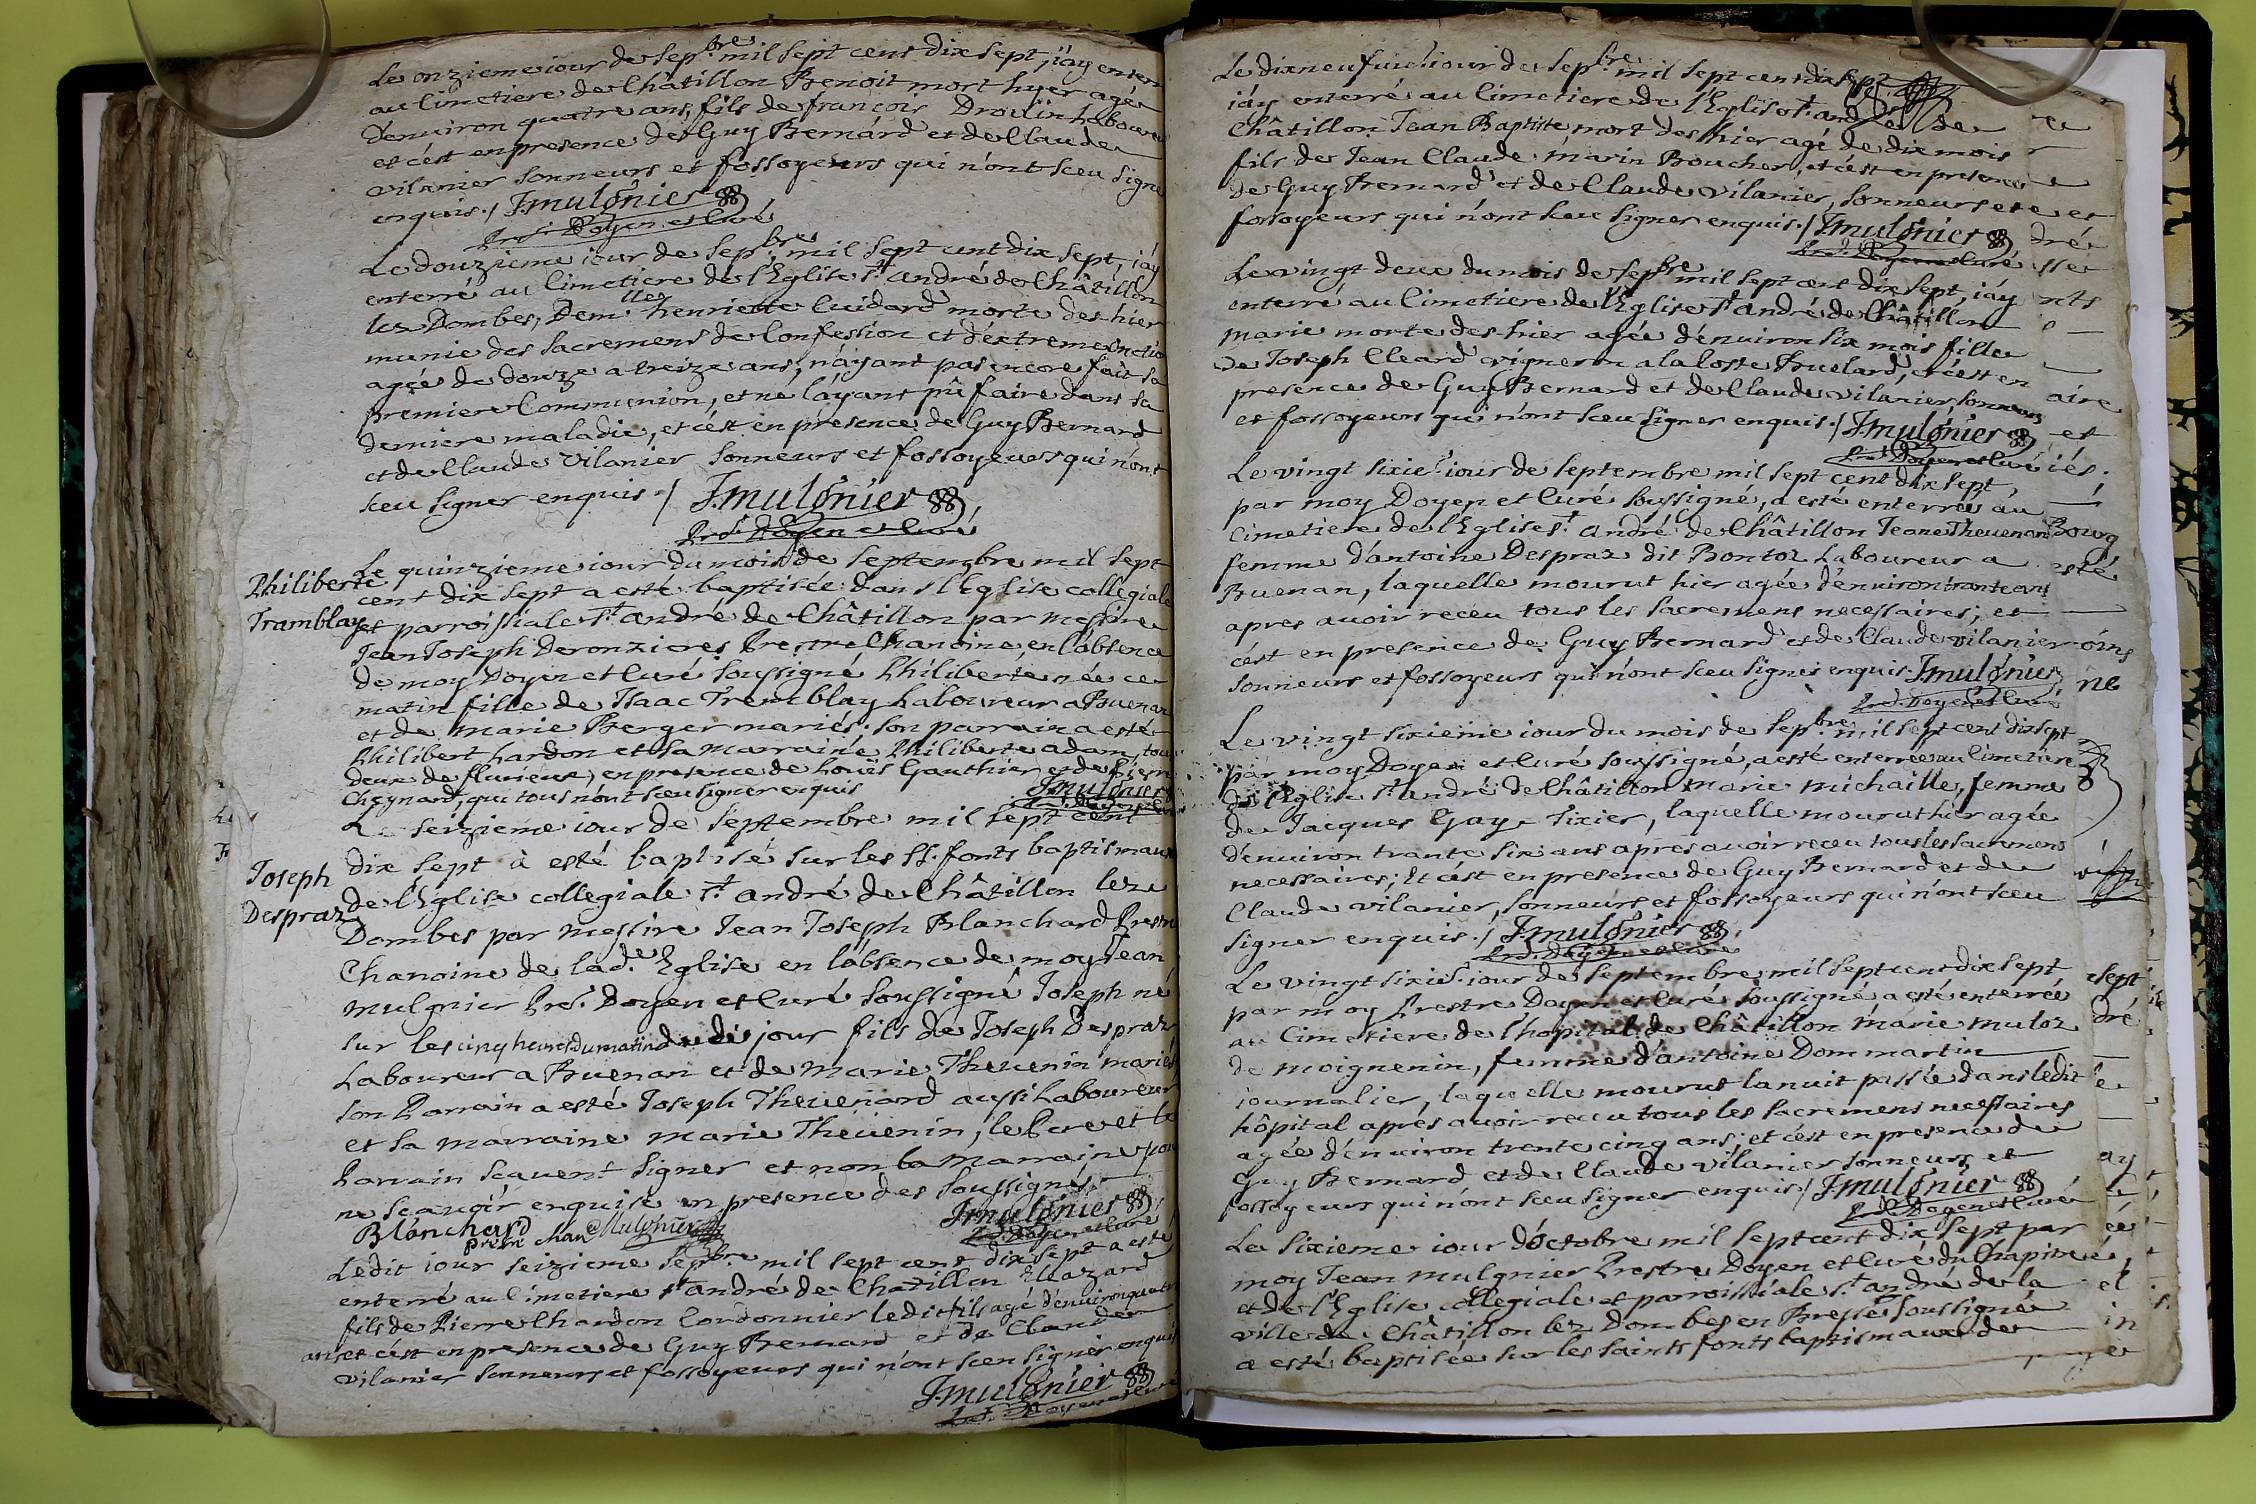 Le onzieme jour de sep.bre mil sept cens dix sept, j'ay enterr
au Cimetiere de Châtillon Benoit mort hyer agé
d'environ quatre ans, fils de françois Drouïn Laboureu
et c'est en presence de Guy Bernard et de Claude
vilanier sonneurs et fossoyeurs qui n'ont sceu signe
enquis ./ J.mulonier
Prêt. Doyen et Curé
Le douzieme jour de sep.bre mil sept cent dix sept, j'ay
enterré au Cimetiere de l'Eglise St andré de Châtillon
lez Dombes, Dem.lle henriette Cuidard morte des hier
munie des sacremens de Confession et d'extreme onctio
agée de douze a treize ans, n'ayant pas encore fait sa
premiere Communion, et ne l'ayant pû faire dans sa
derniere maladie, et c'est en presence de Guy Bernard
et de Claude vilanier sonneurs et fossoyeurs qui n'ont
sceu signer enquis ./ J.mulonier
Prêt. Doyen et Curé
Philiberte
Tramblay
Le quinzieme jour du mois de septembre mil sept
cent dix sept a esté baptisée dans l'Eglise collegiale
et parroissiale St andré de Châtillon par messire
Jean Joseph Deronzieres Prestre Chanoine, en l'absence
de moy Doyen et Curé soussigné Philiberte née ce
matin fille de Isaac Tremblay Laboureur a Buenan
et de marie Berger mariés. son parrain a esté
Philibert hardon et sa marraine Philiberte adam, tou
deux de flurieux, en presence de Louïs Gauthier et de pierr
Cheynard, qui tous n'ont sceu signer enquis J.mulonier
Joseph
Despraz
Le seizieme jour de septembre mil sept cent
dix sept à esté baptisé sur les SS. fonts baptismaux
de l'Eglise collegiale St andré de Châtillon lez
Dombes par messire Jean Joseph Blanchard Prestr
Chanoine de lad.e Eglise en l'absence de moy Jean
mulonier Prêt. Doyen et Curé soussigné Joseph né
sur les cinq heures du matin dudit jour fils de Joseph Despraz
Laboureur a Buenan et de marie Thevenin mariés
son Parrain a esté Joseph Thevenard aussi Laboureur
et sa marraine marie Thevenin, le Pere et le
Parrain scavent signer et non la marraine pou
ne scavoir enquise en presence des soussignés
Blanchard prêtre chan. Mulonier J.mulonier
Prêt. Doyen et Curé
Ledit jour seizieme sep.bre mil sept cent dix sept a esté
enterré au cimetiere St andré de Chatillon Eleazard
fils de Pierre Chardon Cordonnier ledit fils agé d'environ quatr
ans et c'est en presence de Guy Bernard et de Claude
vilanier sonneurs et fossoyeurs qui n'ont sceu signer enquis
J.mulonier
Prêt. Doyen et Curé
Le dixneufuieme jour de sep.bre mil sept cent dix sept
j'ay enterré au Cimetiere de l'Eglise St andré de
Châtillon Jean Baptiste mort des hier agé de dix mois
fils de Jean Claude marin Boucher, et c'est en presence
de Guy Bernard et de Claude vilanier, sonneurs et
fossoyeurs qui n'ont sceu signer enquis ./ J.mulonier
Prêt. Doyen et Curé
Le vingt deux du mois de sep.bre mil sept cent dix sept, j'ay
enterré au Cimetiere de l'Eglise St andré de Châtillon
marie morte des hier agée d'environ six mois fille
de Joseph Cleard vigneron a la Coste Bruelard, et c'est en
presence de Guy Bernard et de Claude vilanier, sonneurs
et fossoyeurs qui n'ont sceu signer enquis ./ J.mulonier
Prêt. Doyen et Curé
Le vingt sixie.e jour de septembre mil sept cent dix sept
par moy Doyen et Curé soussigné, a esté enterrée au
Cimetiere de l'Eglise St andré de Châtillon Jeane Thevenard
femme d'antoine Despraz dit Bontoz Laboureur a
Buenan, laquelle mourut hier agée d'environ trante ans
apres avoir receu tous les sacremens necessaires; et
c'est en presence de Guy Bernard et de Claude vilanier
sonneurs et fossoyeurs qui n'ont sceu signer enquis. J.mulonier
Prêt. Doyen et Curé
Le vingt sixieme jour du mois de sep.bre mil sept cent dix sept
par moy Doyen et Curé soussigné, a esté enterrée au Cimetiere
de l'Eglise St andré de Châtillon marie michaille, femme
de Jacques Gay Tixier, laquelle mourut hier agée
d'environ trante six ans apres avoir receu tous les sacremens
necessaires; Et c'est en presence de Guy Bernard et de
Claude vilanier, sonneurs et fossoyeurs qui n'ont sceu
signer enquis ./ J.mulonier
Prêt. Doyen et Curé
Le vingt sixie.e jour de septembre mil sept cent dix sept
par moy Prestre Doyen et Curé soussigné a esté enterrée
au Cimetiere de l'hopital de Châtillon marie muloz
de moignenin, femme d'antoine Dommartin
journalier, laquelle mourut la nuit passée dans ledit
hôpital aprés avoir receu tous les sacremens necessaires
agée d'environ trente cinq ans; et c'est en presence de
Guy Bernard et de Claude vilanier sonneurs et
fossoyeurs qui n'ont sceu signer enquis ./ J.mulonier
Prêt. Doyen et Curé
Le sixieme jour d'octobre mil sept cent dix sept par
moy Jean mulonier Prestre Doyen et Curé du Chapitre
et de l'Eglise collegiale et parroissiale St andré de la
ville de Châtillon lez Dombes en Bresse soussigné
a esté baptisée sur les saints fonts baptismaux de